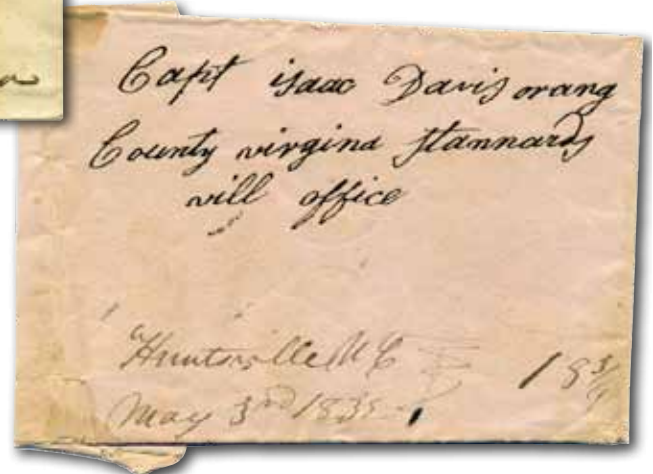 Capt isaac Davis orang
County virgina stannards
vill office
Huntsville N C
18 3/4
May 3rd 183